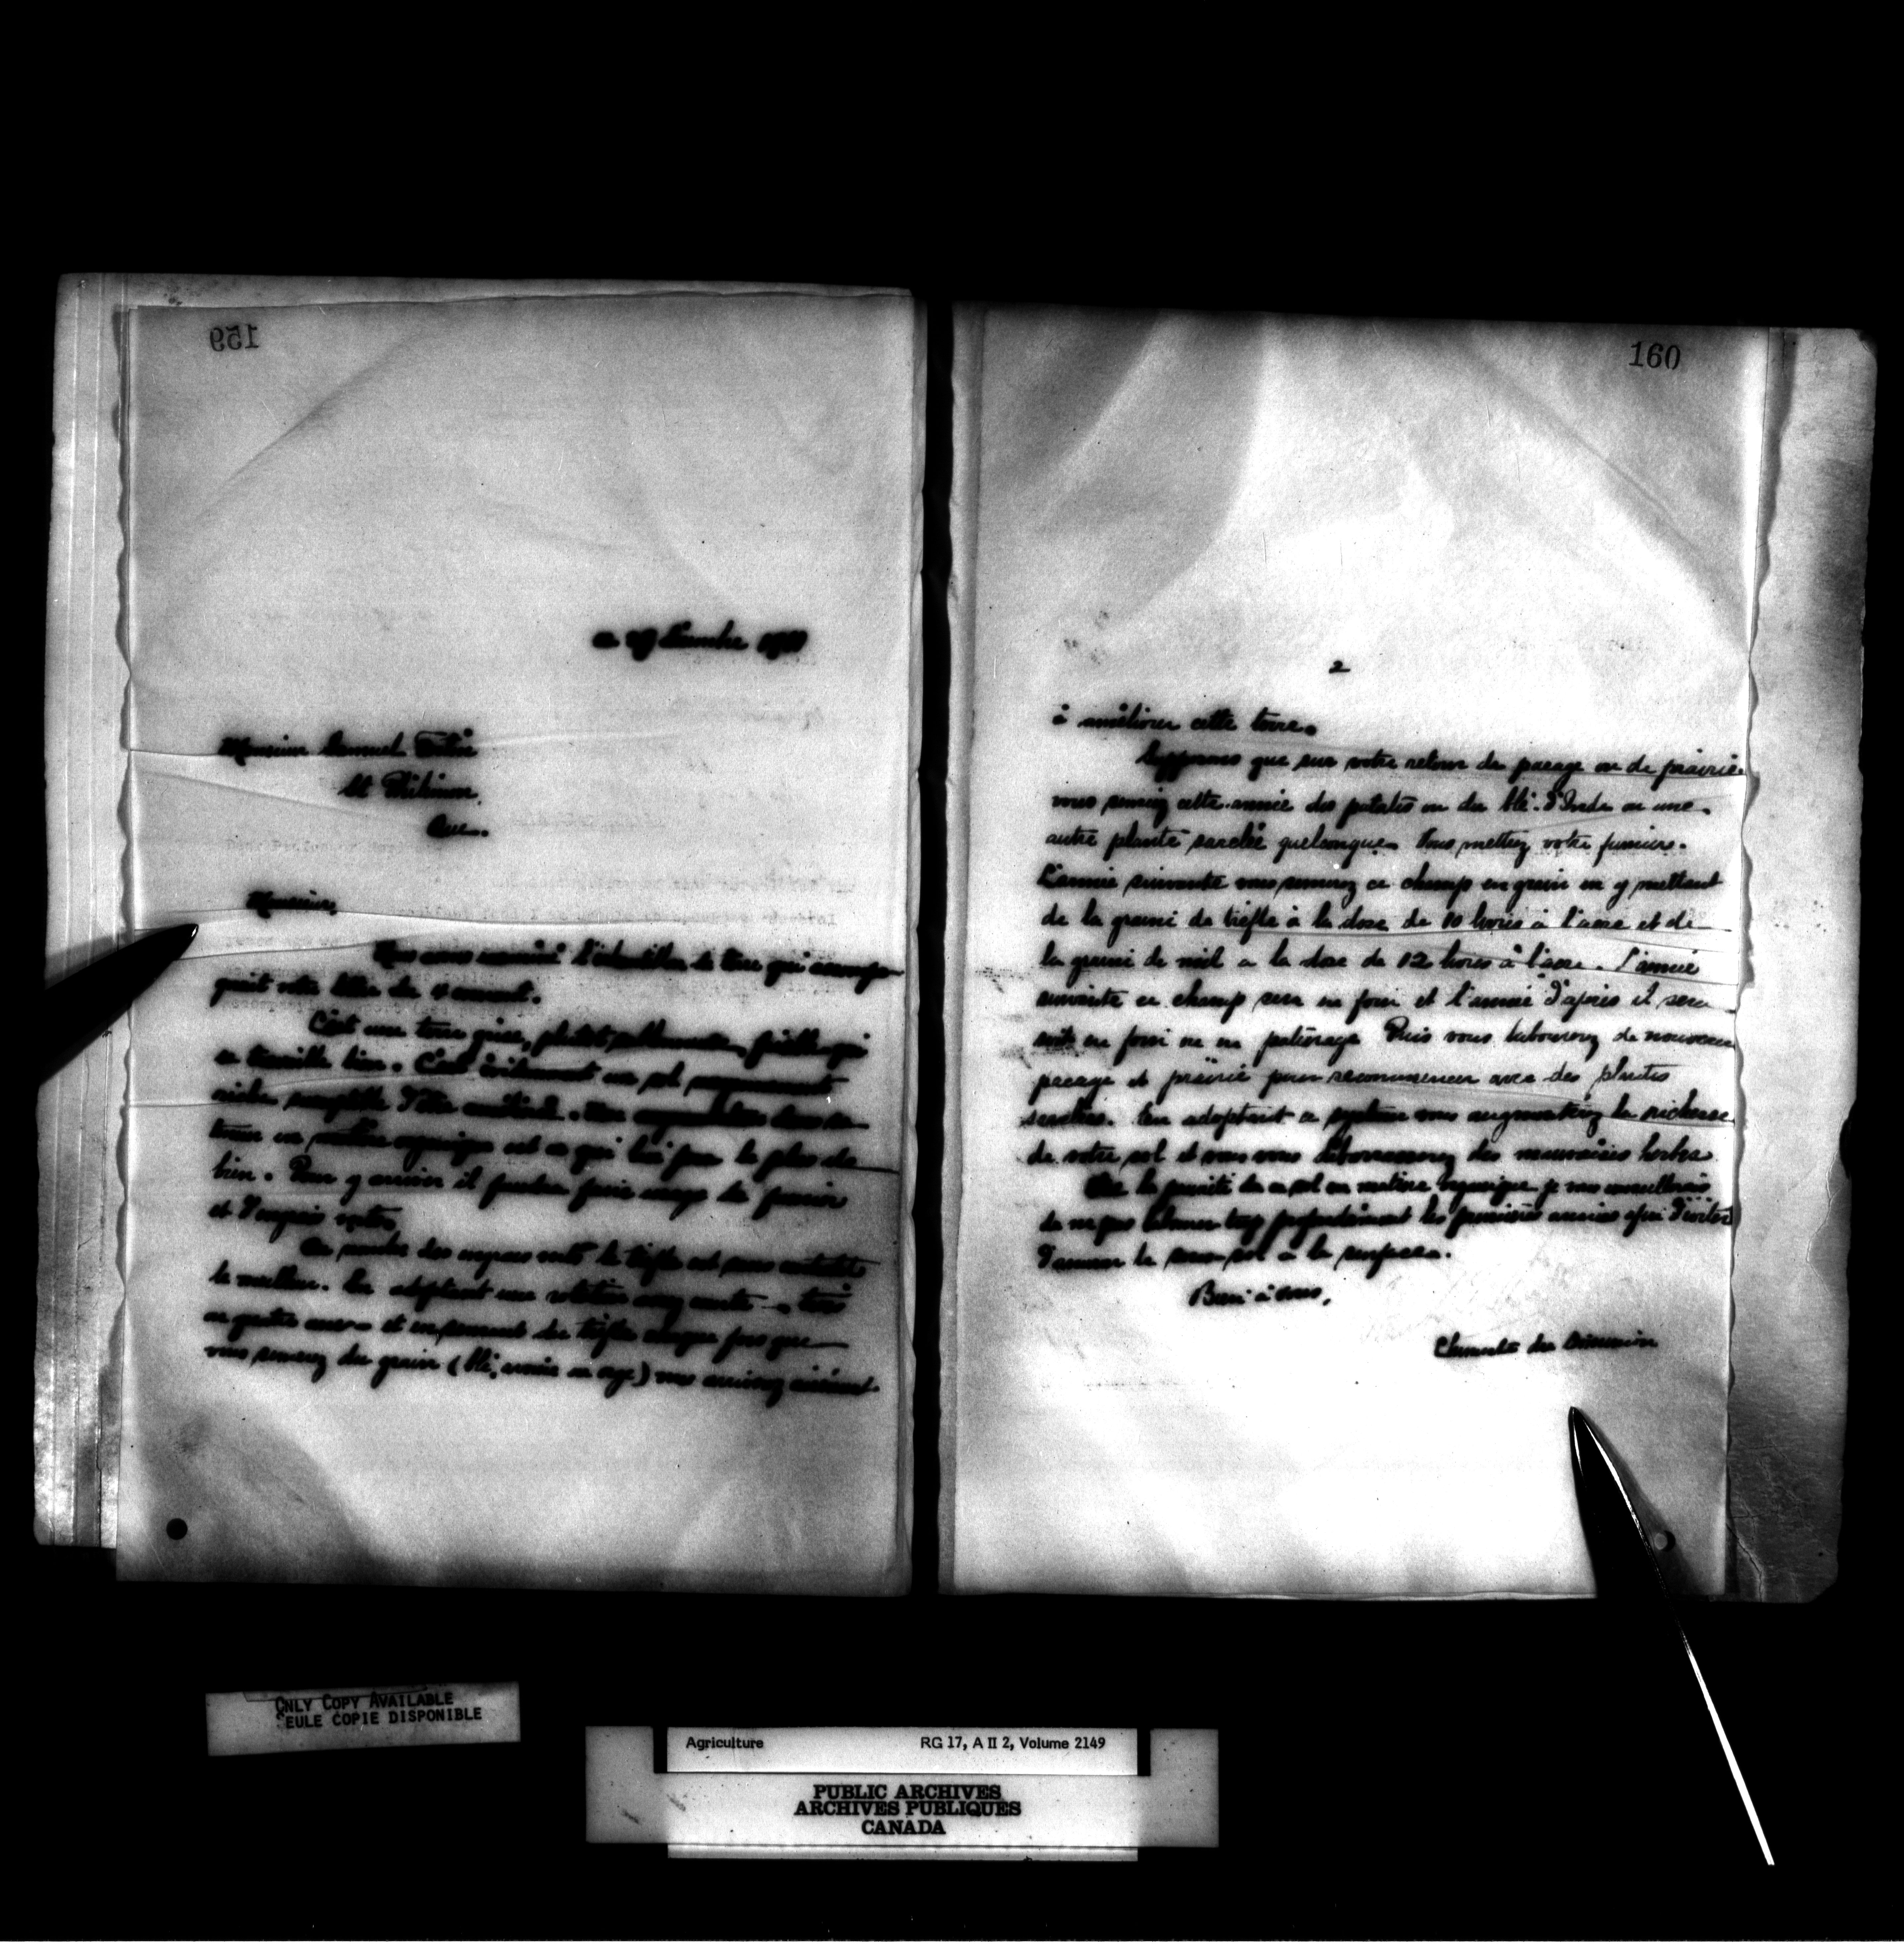 159
ce 19 1911
Monsieur Samuel
St
Que.
Monsieur,
Nous avons examiné l'échantillon de terre qui accompa-
gnait votre lettre du 4 courant.
C'est une terre grise, plutôt sablonneuse, friable qui
se travaille bien. C'est évidemment un sol moyennement
riche susceptible d'être amélioré. Une augmentation dans sa
teneur en matière organique est ce qui lui fera le plus de
bien. Pour y arriver il faudra faire usage de fumier
et d'engrais verts.
Au nombre des engrais verts le trèfle est sans contredit
le meilleur. En adoptant une rotation assez courte - trois
ou quatre ans - et en semant du trèfle chaque fois que
vous semez du grain (blé, avoine ou orge) vous arriverez aisément
160
2
à améliorer cette terre.
Supposons que sur votre retour de pacage ou de prairie
vous semiez cette année des patates ou du blé-d'Inde ou une
autre plante sarclée quelconque. Vous mettez votre fumier.
L'année suivante vous semez ce champ en grain en y mettant
de la graine de trèfle à la dose de 10 livres à l'acre et de
la graine de mil à la dose de 12 livres à l'acre. L'année
suivante ce champ sera en foin et l'année d'après il sera
soit en foin ou en pâturage. Puis vous labourez de nouveau
pacage et prairie pour recommencer avec des plantes
sarclées. En adoptant ce système vous augmentez la richesse
de votre sol et vous vous débarrassez des mauvaises herbes.
Vu la pauvreté de ce sol en matière organique je vous conseillerais
de ne pas labourer trop profondément les premières années afin d'éviter
d'amener le sous-sol à la surface.
Bien à vous,
Chimiste du Dominion
ONLY COPY AVAILABLE
SEULE COPIE DISPONIBLE
Agriculture RG 17, A II 2, Volume 2149
PUBLIC ARCHIVES
ARCHIVES PUBLIQUES
CANADA